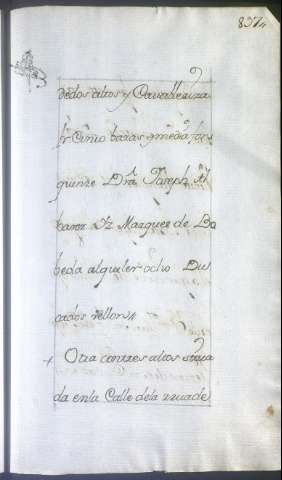 837
dedos altos y Cavalleriza
fr. Cinco baras y media, fdo
quinze Dra. Joseph Al
barez Iz Marques de Bo
beda alquiler ocho Du
cados vellon
+ Otra con tres altos situa
da enla Calle dela rruade